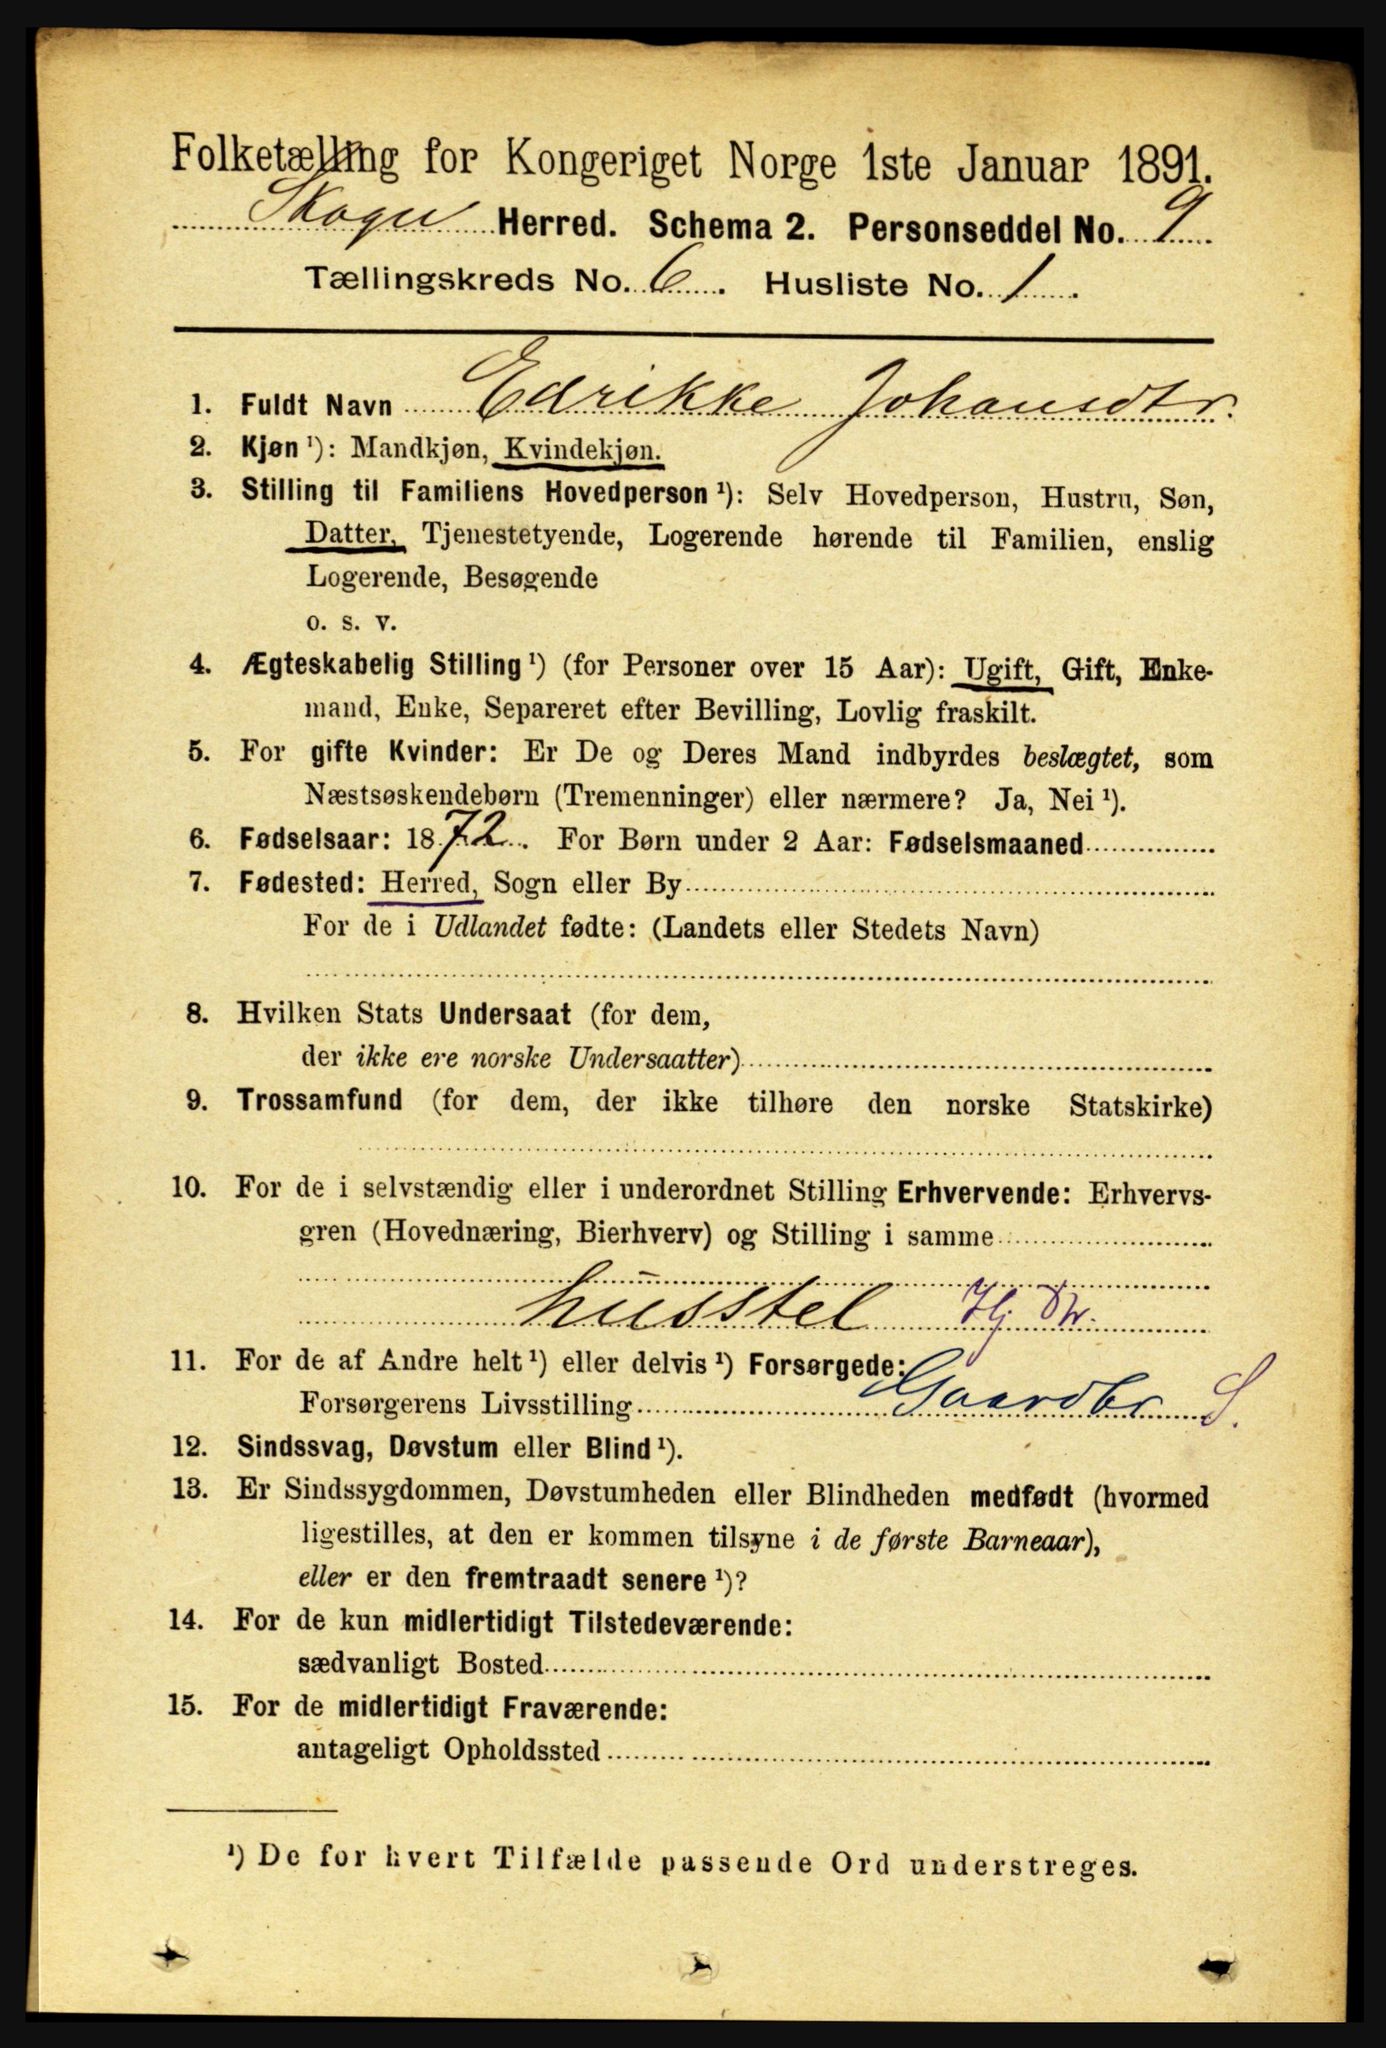 Folketælling for Kongeriget Norge 1ste Januar 1891.
Skoger Herred. Schema 2. Personseddel No. 9
Tællingskreds No. 6. Husliste No. 1.
1. Fuldt Navn Edrikke Johansdtr.
2. Kjøn ¹): Mandkjøn, Kvindekjøn.
3. Stilling til Familiens Hovedperson ¹): Selv Hovedperson, Hustru, Søn,
Datter, Tjenestetyende, Logerende hørende til Familien, enslig
Logerende, Besøgende
o. s. v.
4. Ægteskabelig Stilling ¹) (for Personer over 15 Aar): Ugift, Gift, Enke-
mand, Enke, Separeret efter Bevilling, Lovlig fraskilt.
5. For gifte Kvinder: Er De og Deres Mand indbyrdes beslægtet, som
Næstsøskendebørn (Tremenninger) eller nærmere? Ja, Nei ¹).
6. Fødselsaar: 1872. For Børn under 2 Aar: Fødselsmaaned
7. Fødested: Herred, Sogn eller By
For de i Udlandet fødte: (Landets eller Stedets Navn)
8. Hvilken Stats Undersaat (for dem,
der ikke ere norske Undersaatter)
9. Trossamfund (for dem, der ikke tilhøre den norske Statskirke)
10. For de i selvstændig eller i underordnet Stilling Erhvervende: Erhvervs-
gren (Hovednæring, Bierhverv) og Stilling i samme
husstel
11. For de af Andre helt ¹) eller delvis ¹) Forsørgede:
Forsørgerens Livsstilling Gaardbr S.
12. Sindssvag, Døvstum eller Blind ¹).
13. Er Sindssygdommen, Døvstumheden eller Blindheden medfødt (hvormed
ligestilles, at den er kommen tilsyne i de første Barneaar),
eller er den fremtraadt senere ¹)?
14. For de kun midlertidigt Tilstedeværende:
sædvanligt Bosted
15. For de midlertidigt Fraværende:
antageligt Opholdssted
¹) De for hvert Tilfælde passende Ord understreges.